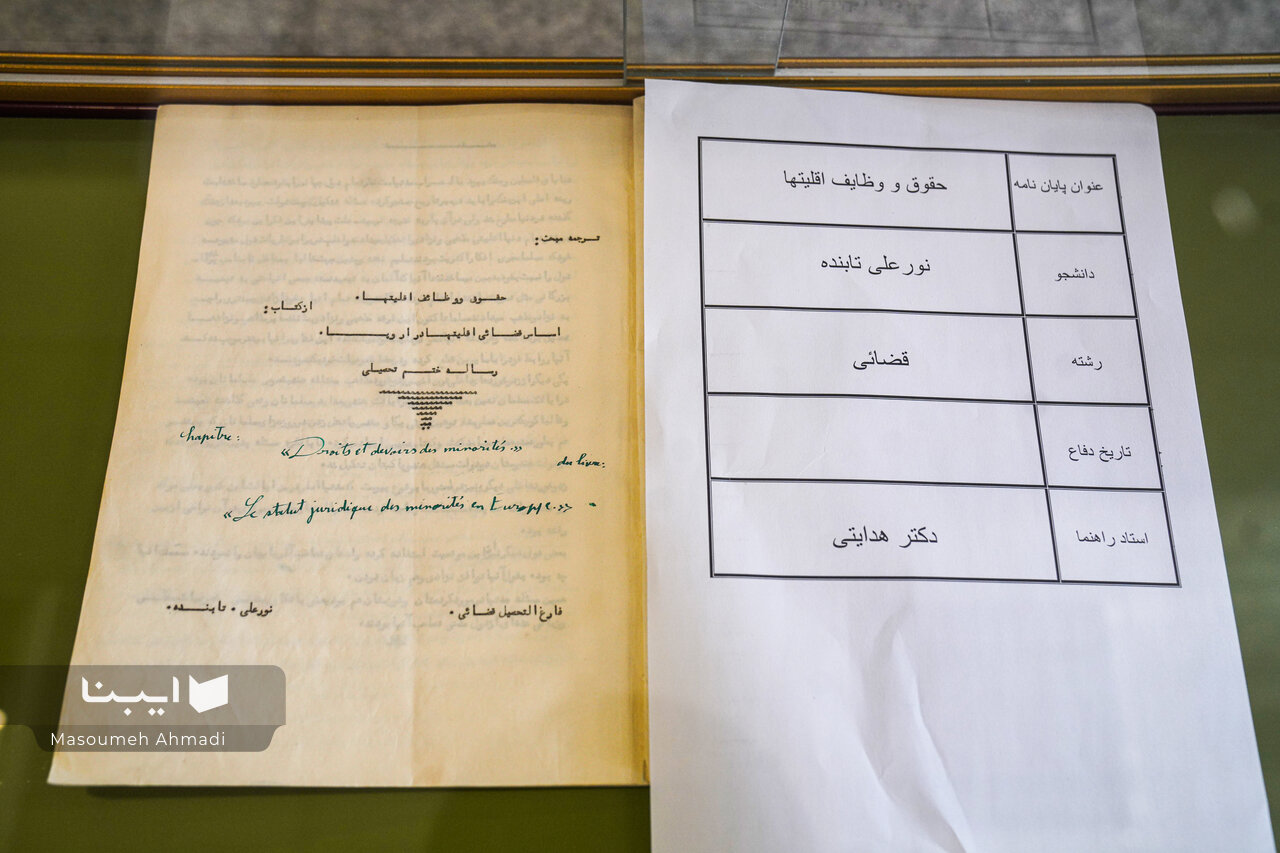 ترجمه مبحث:
حقوق ووظائف اقلیتها.
ازکتاب:
اساس قضائی اقلیتها در اروپا.
رساله ختم تحصیلی
chapitre:
«Droits et devoirs des minorités.»
du livre:
«Le statut juridique des minorités en Europe.» -
فارغ التحصیل قضائی. نورعلی. تابنده.
عنوان پایان نامه حقوق و وظایف اقلیتها
دانشجو نورعلی تابنده
رشته قضائی
تاریخ دفاع
استاد راهنما دکتر هدایتی
ایبنا
Masoumeh Ahmadi